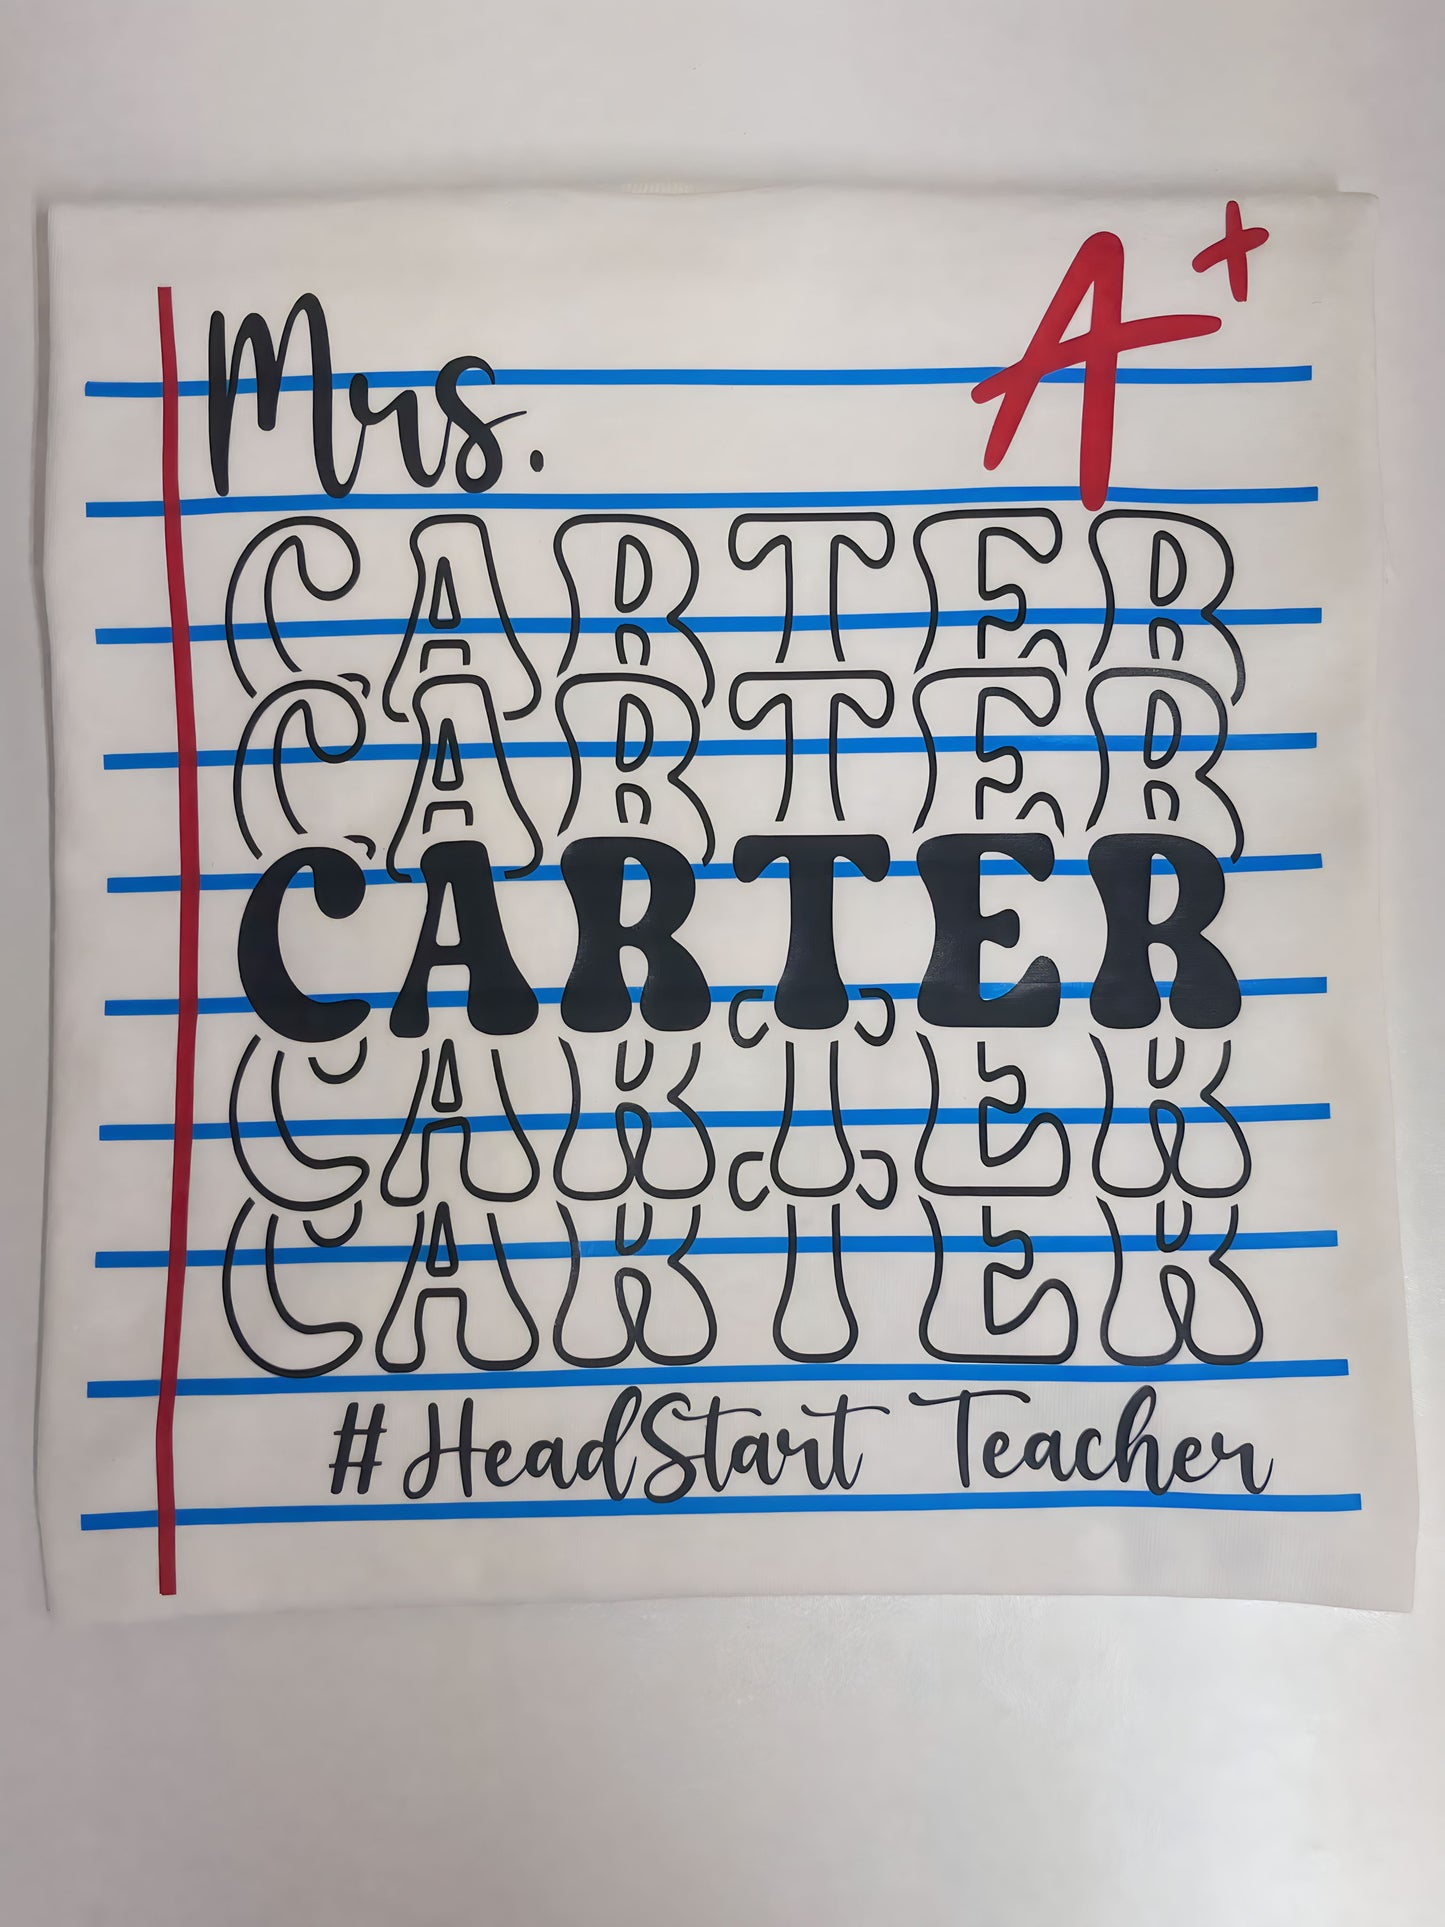 Mrs.
A+
CARTER
CARTER
CARTER
CARTER
CARTER
#HeadStart Teacher